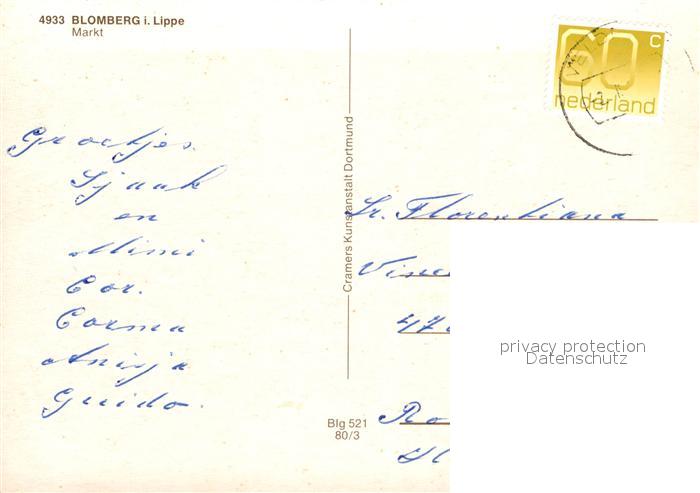 4933 BLOMBERG i. Lippe
Markt
Groetjes.
Sjaak
en
Mimi
Cor.
Corma
Anisja
Guido.
Cramers Kunstanstalt Dortmund
Blg 521
80/3
60 c
nederland
Sr. Florentiana
privacy protection
Datenschutz